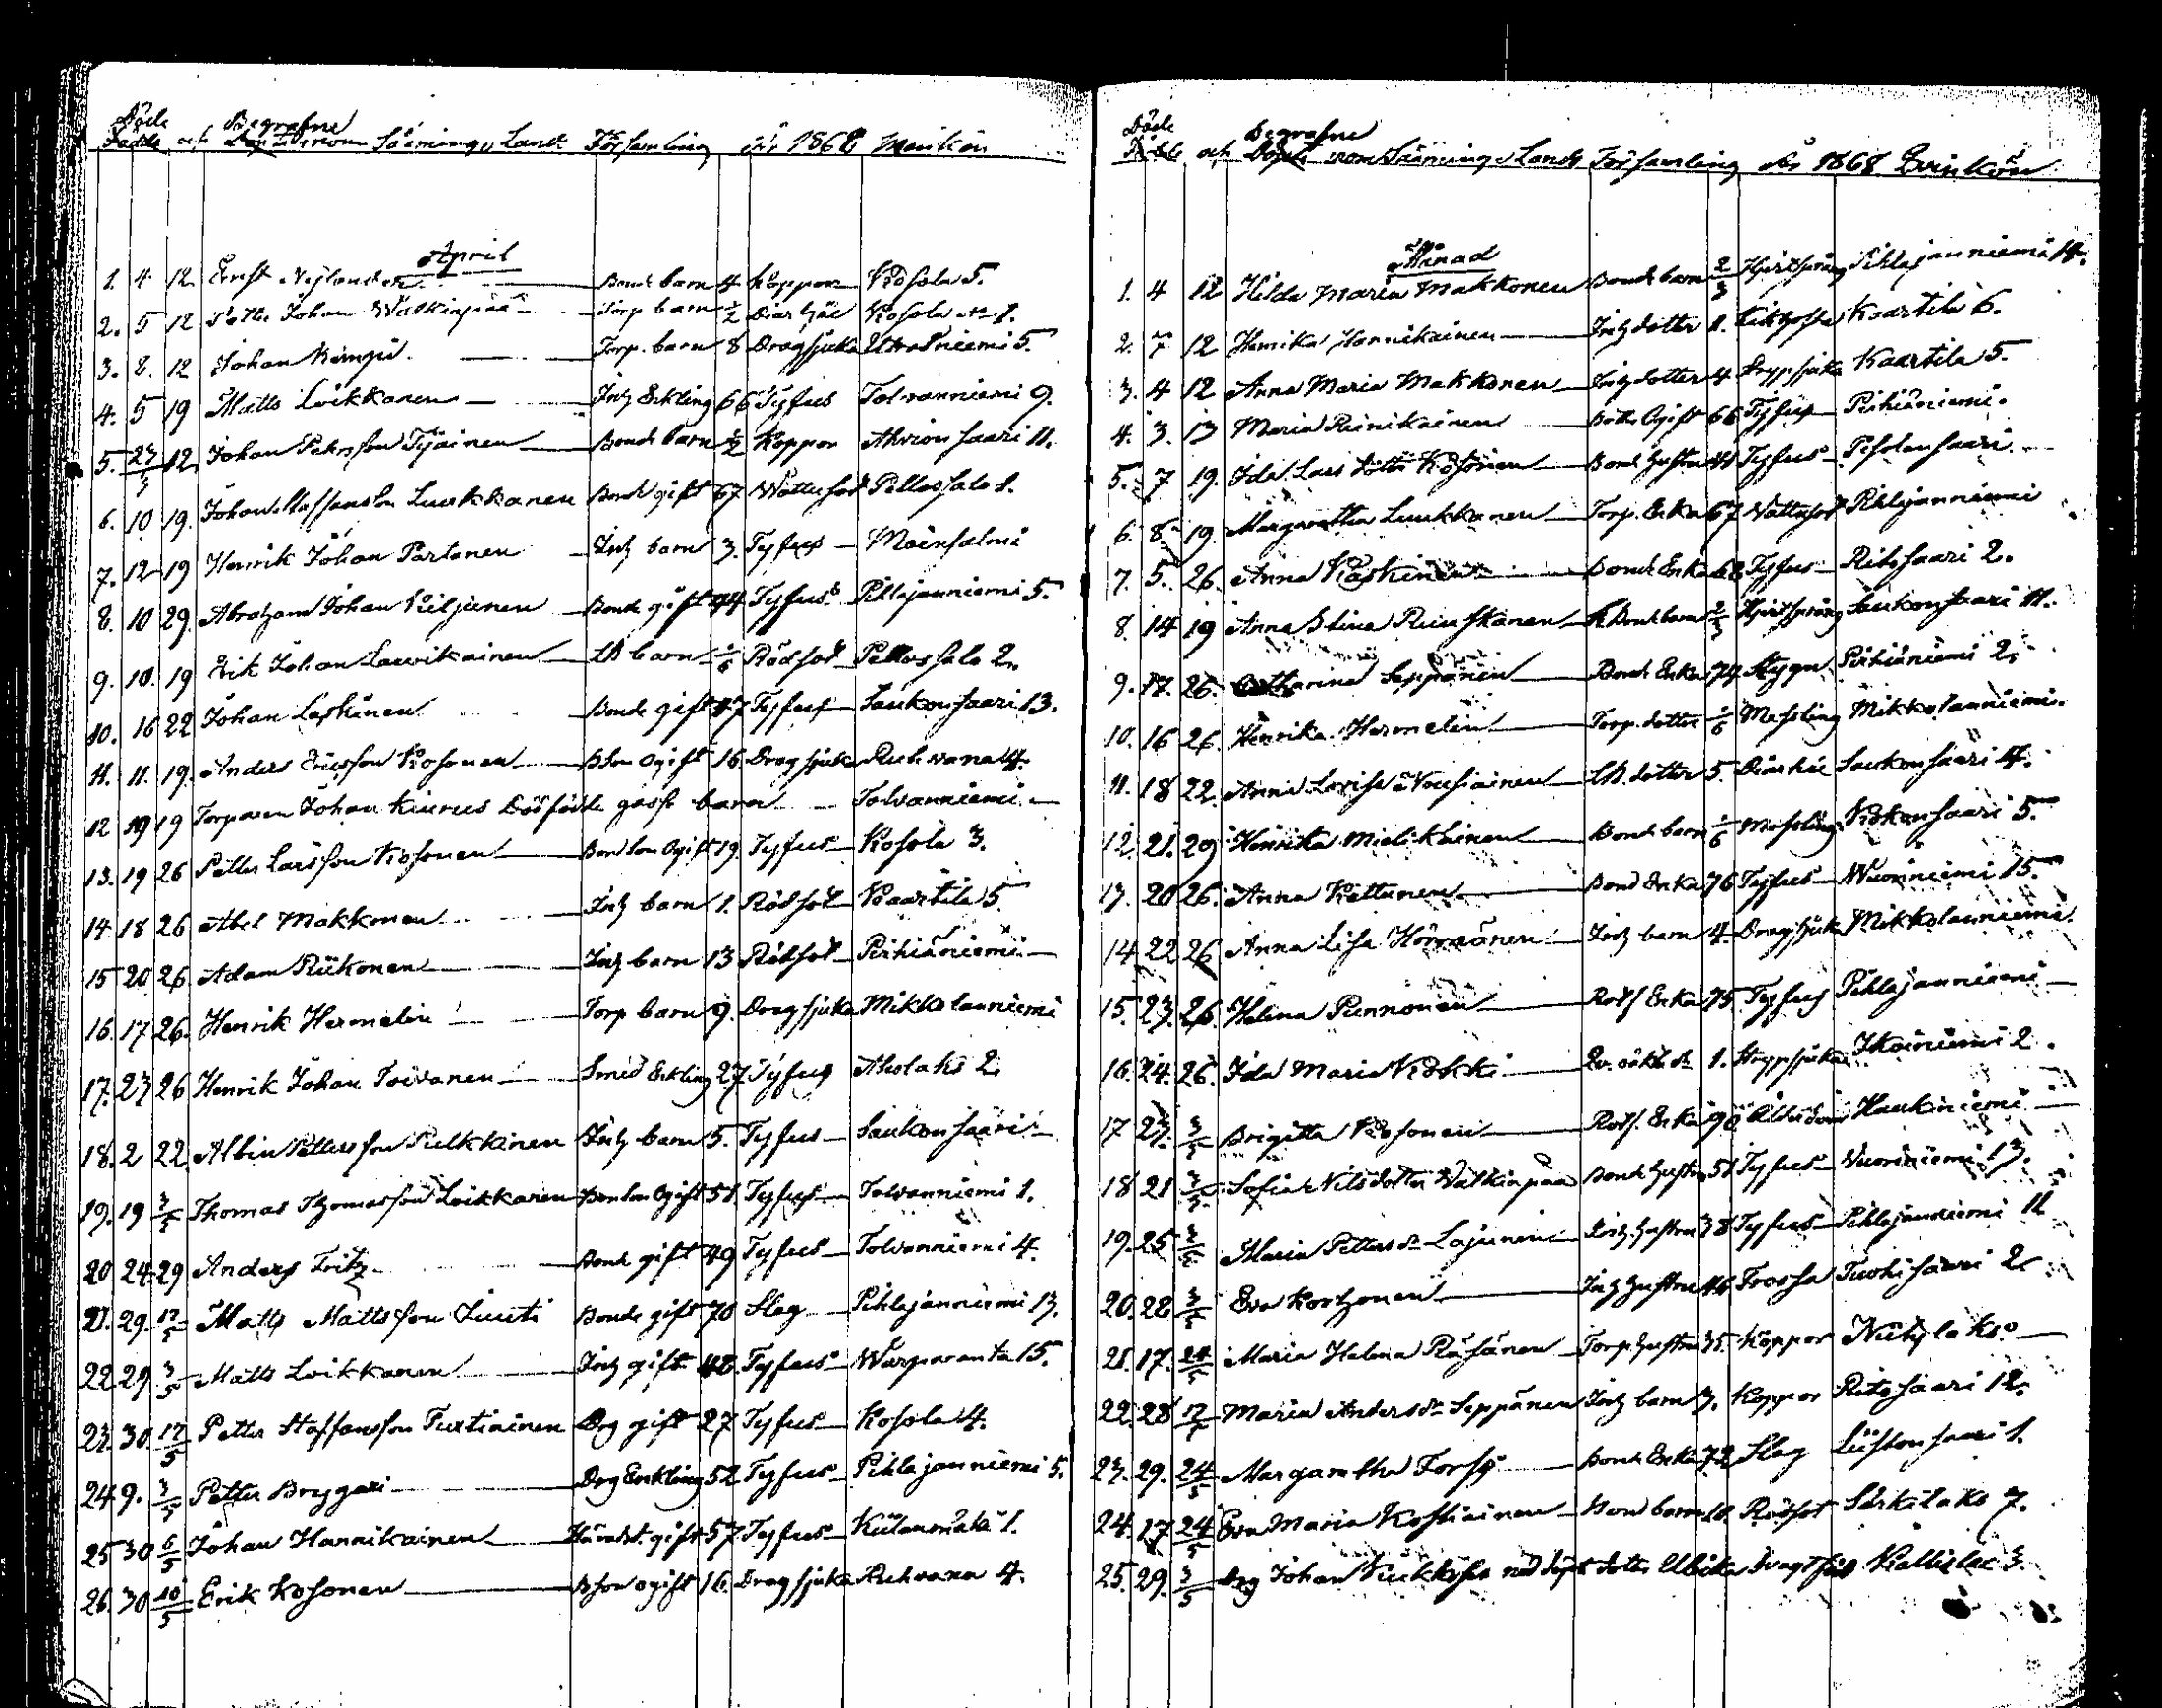 Döde Begrafne
Födde och Döpte inom Sääminge Lands Församling år 1868 Mankön
April
1. 4 12 Ernst Nylander Bonde barn 4 Koppor Kosola 5.
2. 5 12 Petter Johan Walkiapää Torp barn 1/2 Diarhäe Kosola 1.
3. 8. 12 Johan Kimpi. Torp. barn 8 Dragsjuka 5.
4. 5 19 Matts Loikkanen Inh Enkling 66 Tyfus Tolvanniemi 9.
5. 23/3 12 Johan Petersson Tyäinen Bonde barn 1/2 Koppor Ahvionsaari 11.
6. 10 19. Johan Staffansson Luukkanen Bonde gift 67 Wattusot Pellossalo 1.
7. 12 19 Henrik Johan Partanen Inh barn 3. Tyfus Moinsalmi
8. 10 29. Abraham Johan Siljunen Bonde gift 44 Tyfus Pihlajanniemi 5.
9. 10. 19 Erik Johan Laurikainen LB barn 1/6 Rödsot Pellossalo 2.
10. 16 22 Johan Laskinen Bonde gift 47 Tyfus Saukonsaari 13.
11. 11. 19. Anders Ericsson Kosonen BSon Ogift 16. Dragsjuka Ruhvana 4.
12 19 19 Torparen Johan Kiurus Dödfödde gosse barn Tolvanniemi
13. 19 26 Petter Larsson Kosonen Bond son Ogift 19. Tyfus Kosola 3.
14. 18 26 Abel Makkonen Inh barn 1. Rödsot Kaartila 5
15 20 26 Adam Riikonen Inh barn 13 Rödsot Pirhiäniemi
16. 17 26. Henrik Hermelin Torp barn 9. Dragsjuka Mikkolanniemi
17. 23 26 Henrik Johan Toivanen Smed Enkling 27 Tyfus Aholaks 2.
18. 2 22. Albin Pettersson Pulkkinen Inh barn 5. Tyfus Saukonsaari
19. 19 3/5 Thomas Thomasson Loikkanen Bonson Ogift 51. Tyfus Tolvanniemi 1.
20 24 29 Anders Fritz Bonde gift 49 Tyfus Tolvanniemi 4.
21. 29. 17/5 Matts Mattsson Luuti Bonde gift 70 Slag Pihlajanniemi 13.
22 29 3/5 Matts Loikkanen Inh gift 48. Tyfus Warparanta 15.
23. 30. 17/5 Petter Staffansson Turtiainen Drg gift 27 Tyfus Kosola 4.
24 9. 3/5 Petter Bryggari Drg Enkling 52 Tyfus Pihlajanniemi 5.
25 30 6/5 Johan Hannikainen gift 57 Tyfus Kiilanmäki 1.
26. 30 10/5 Erik Kosonen Bson ogift 16. Dragsjuka Ruhvana 4.
Döde Begrafne
Födde och Döpte inom Sääminge Lands Församling år 1868 Qvinkön
Månad
1. 4 12 Hilda Maria Makkonen Bonde barn 2/3 Hjertsprång Pihlajanniemi 14.
2. 7 12 Henrika Hannikainen Inh dotter 11. Kikhosta Kaartila 6.
3. 4 12 Anna Maria Makkonen Inh dotter 4 Strypsjuka Kaartila 5.
4. 3. 13 Maria Reinikainen Ogift 66 Tyfus Pirhiäniemi.
5. 7 19. Ida Lars dotter Kosonen Bond hustru 41 Tyfus Pesolansaari
6. 8 19. Margaretha Luukkanen Torp. Enka 67 Wattusot Pihlajanniemi
7. 5. 26. Anna Raskinen Bonde Enka 68. Tyfus Ritosaari 2.
8. 14 19 Anna Stina Ruuskanen Bond barn 2/3 Hjertsprång Saukonsaari 11.
9. 17. 26. Catharina Seppänen Bonde Enka 74 Stygn Pirhiäniemi 2.
10. 16 26. Henrika Hermelin Torp. dotter 1/6 Messling Mikkolanniemi.
11. 18 22. Anna Lovisa Nousiainen LB. dotter 5 Diarhée Saukonsaari 4.
12. 21. 29 Henrika Mielikäinen Bonde barn 1/6 Messling Kokonsaari 5.
13. 20 26. Anna Kettunen Bond Enka 76 Tyfus Wuoriniemi 15.
14 22 26 Anna Lisa Hörmänen Inh barn 4. Dragsjuka Mikkolanniemi.
15. 23. 26. Helena Punnonen Rotf Enka 75. Tyfus Pihlajanniemi
16. 24. 26. Ida Maria Kokki 1. Strypsjuka Ikoiniemi 2.
17 23. 3/5 Brigitta Kosonen Rotf. Enka 90 Ålderdom Haukiniemi
18 21 3/5 Sofia Nilsdotter Walkiapää Bonde hustru 51 Tyfus Wuoriniemi 13.
19. 25 3/5 Maria Petters dr Lajunen Inh. hustru 38 Tyfus Pihlajanniemi 11
20. 28 3/5 Eva Korhonen Inh hustru 46 Frossa Tuohisaari 2.
21. 17. 24/5 Maria Helena Räsänen Torp hustru 35. Koppor Niitylaks.
22. 28 17/5 Maria Anders dr Seppänen Inh barn 3. Koppor Ritosaari 12.
23. 29. 24/5 Margaretha Forss Bonde Enka 72 Slag Liistonsaari 1.
24. 17 24/5 Eva Maria Kostiainen Bond barn 10. Rödsot Särkilaks 7.
25. 29. 3/5 Drg Johan nöd döpt dotter Ulrika Kallislaks 3.